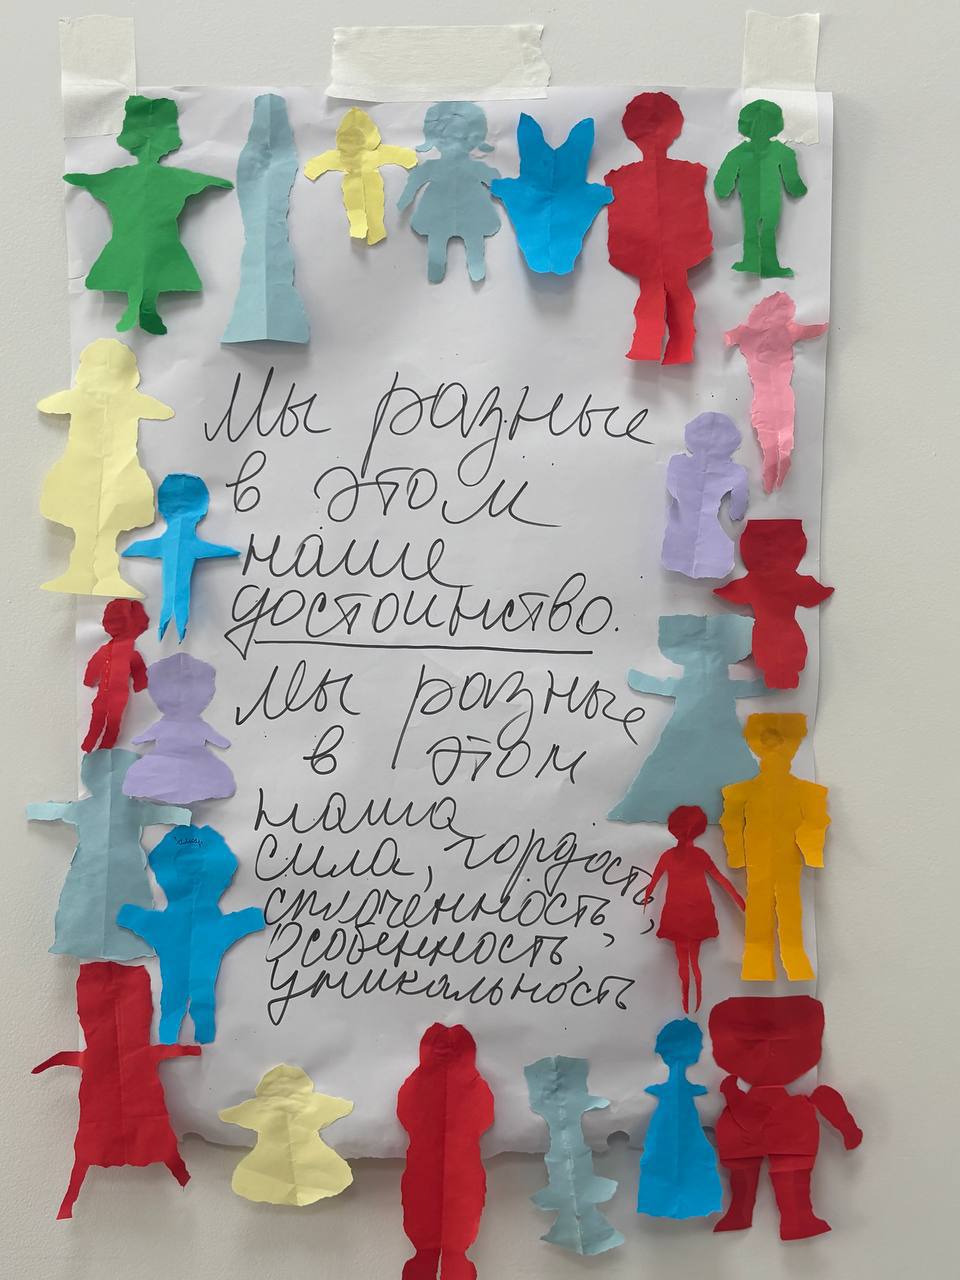 Мы разные
в этом
наше
достоинство.
Мы разные
в этом
наша
сила, гордость,
сплоченность,
особенность,
уникальность